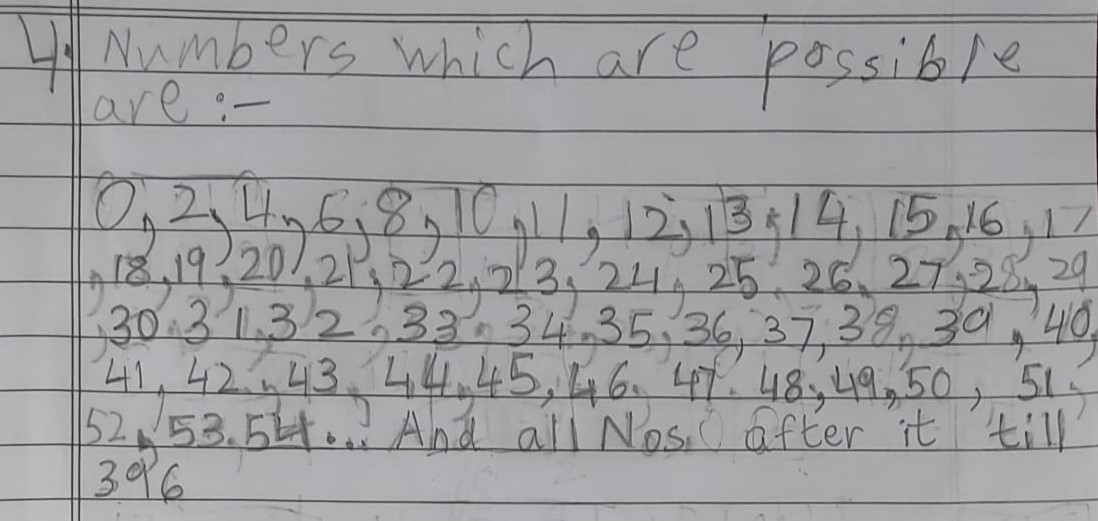 4. Numbers which are possible
are :-
0, 2, 4, 6, 8, 10, 11, 12, 13, 14, 15, 16, 17
, 18, 19, 20, 21, 22, 23, 24, 25, 26, 27, 28, 29
, 30, 31, 32, 33, 34, 35, 36, 37, 38, 39, 40,
41, 42, 43, 44, 45, 46, 47, 48, 49, 50, 51,
52, 53, 54... And all Nos. after it till
396